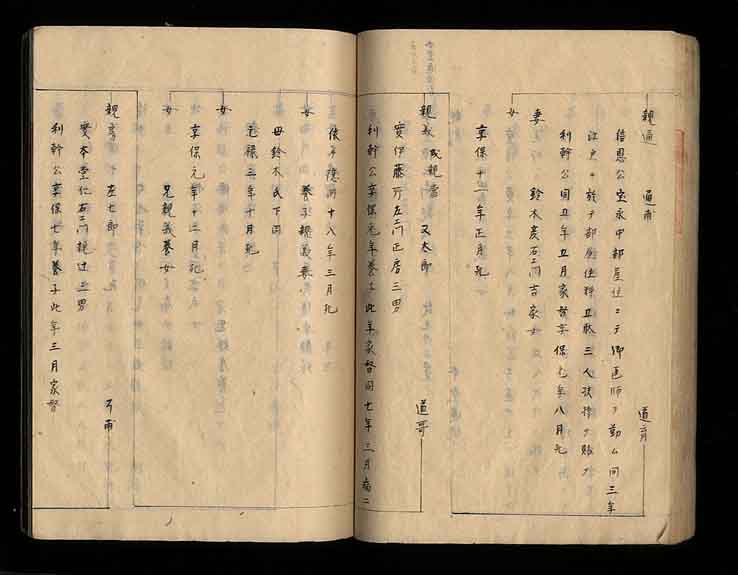 親通 道甫 道育
信恩公宝永中部屋住ニテ御匕師ヲ勤ム同三年
江戸ニ於テ部屋住料五駄三人扶持ヲ賜フ
利幹公同五年五月家督享保七年八月死
妻 鈴木彦右エ門吉家女
女
享保十一年正月死
親義 或親當 又太郎 道哥
實伊藤万左エ門正房三男
利幹公享保元年養子此年家督同七年三月病ニ
依テ隠居十八年三月死
女 養子親義妻
母鈴木氏下同
元禄三年十月死
女
享保元年十二月死
女 兄親義養女
親 左七郎 甫
實本堂仁右エ門親辻三男
利幹公享保七年養子此年三月家督